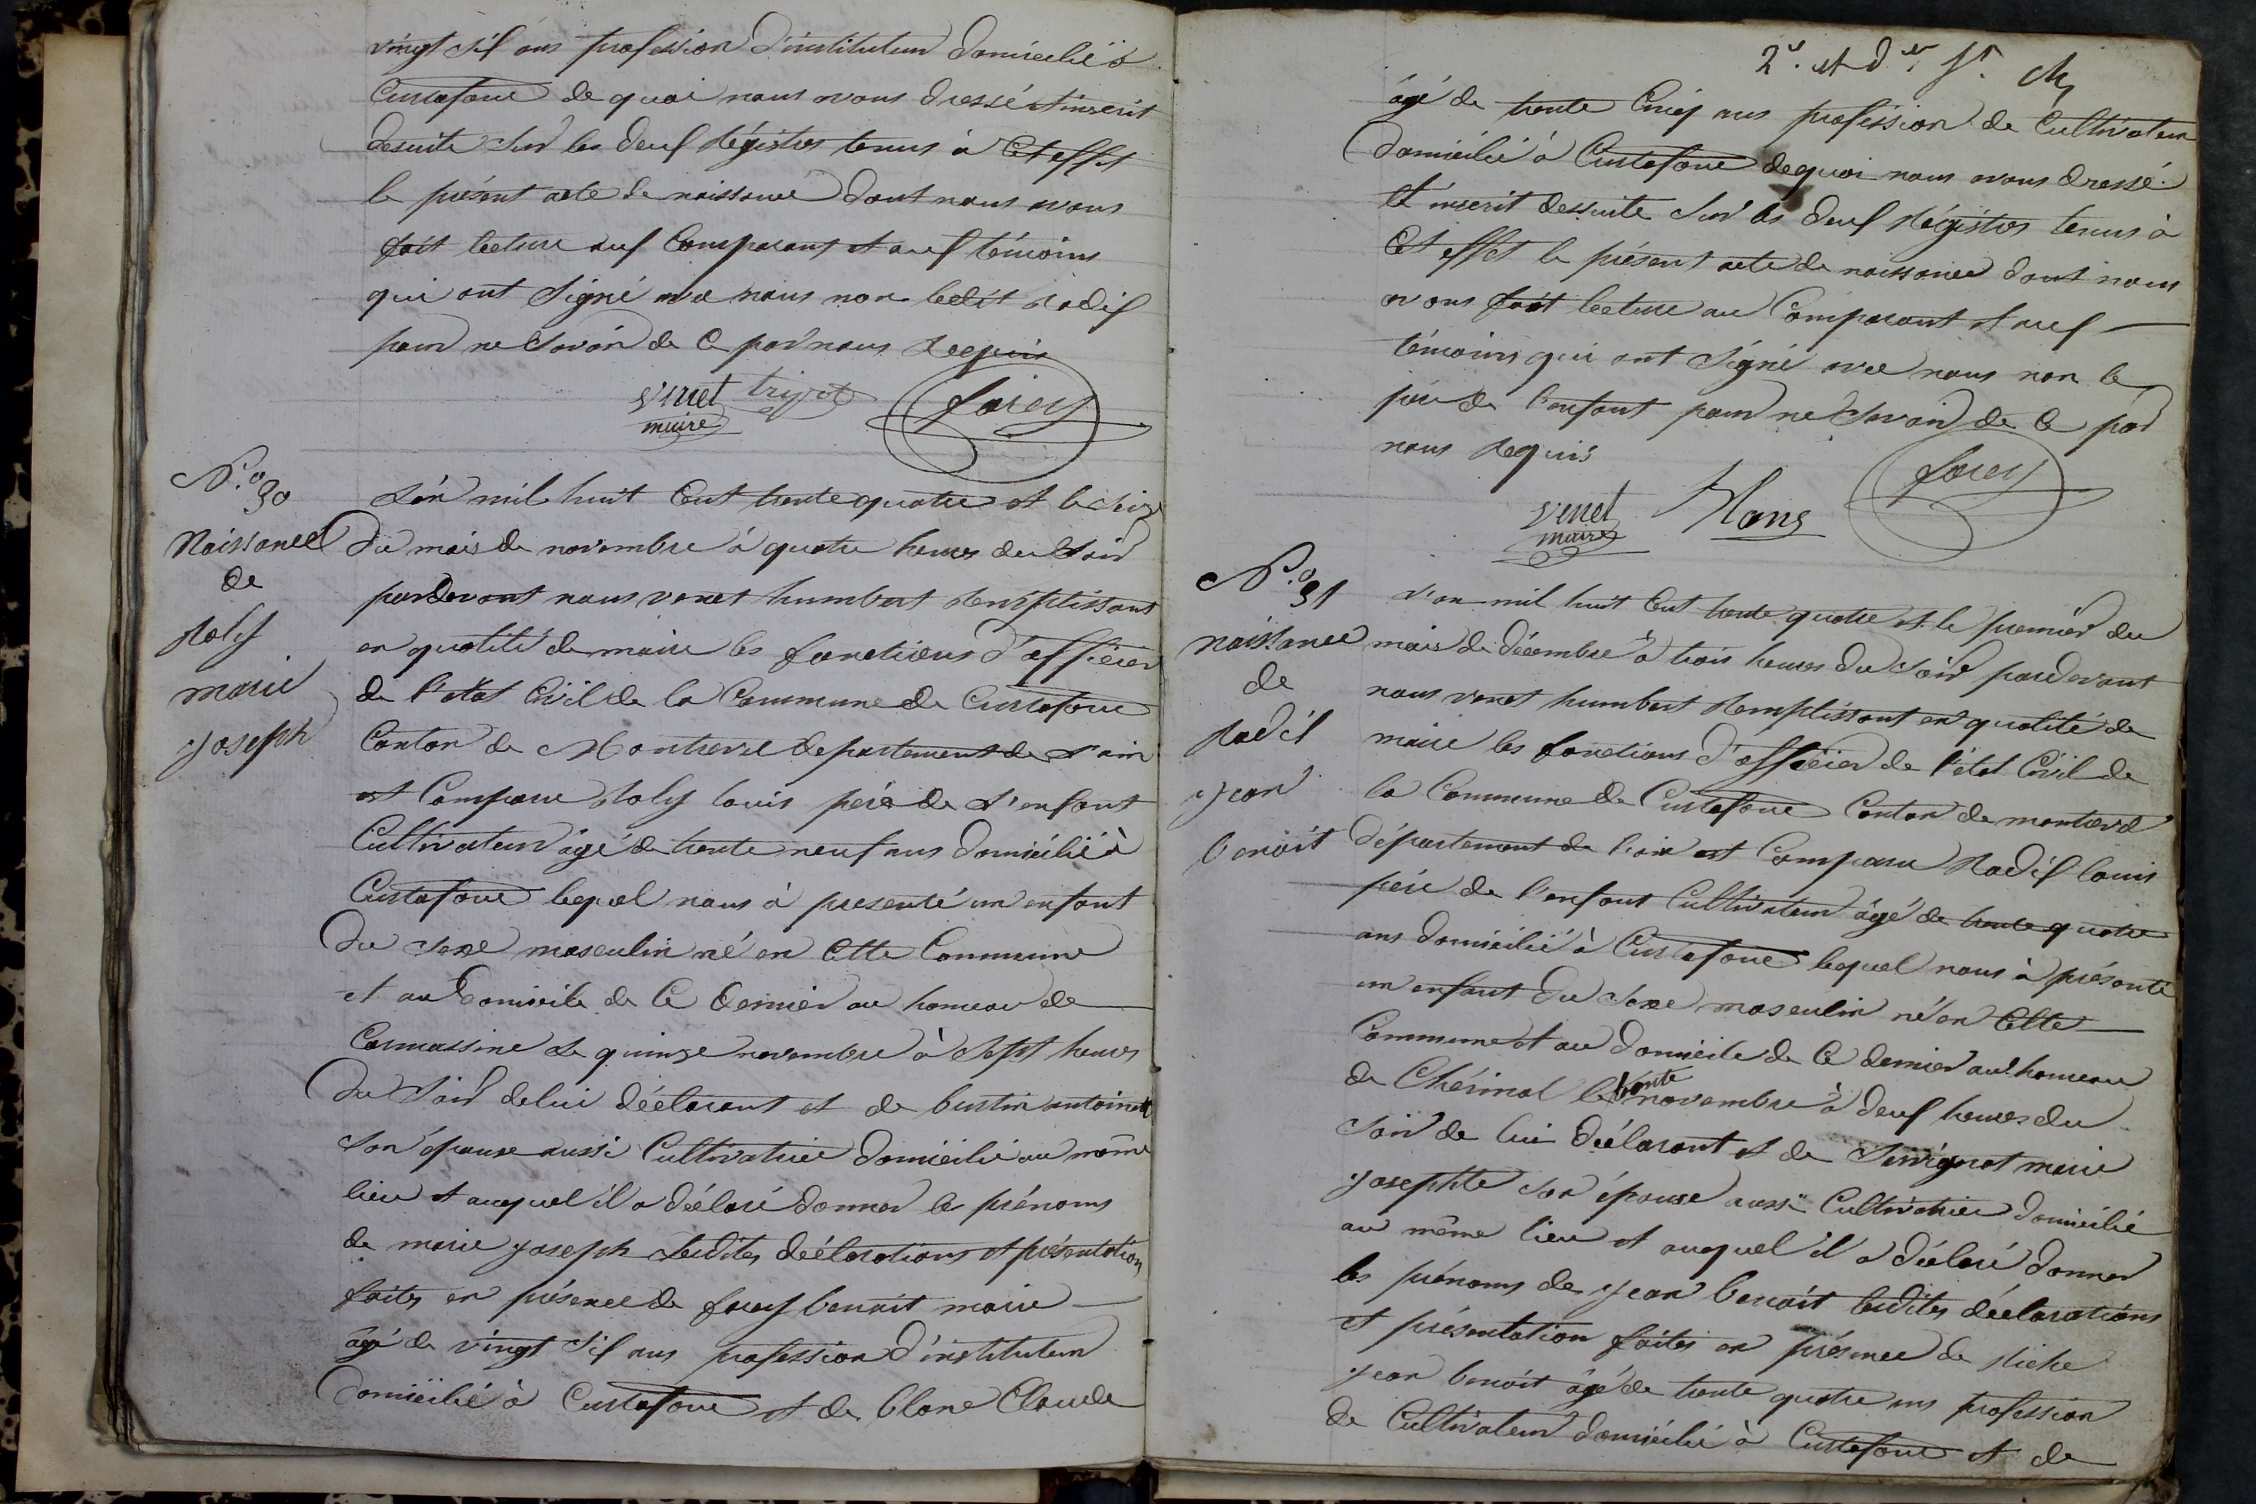 vingt sif ans profession d'instituteur domicilié à
Curtafour de quoi nous avons dressé et inscrit
desuite sur les deuf Régistres tenus à cet effet
le présent acte de naissance dont nous avons
fait lecture auf Comparant et auf témoins
qui ont Signé avec nous non ledit Radif
pour ne savoir de ce par nous Requis
venet maire
forey
N.o 30
Naissance
de
Roly
marie
joseph
L'an mil huit Cent trente quatre et le seize
du mois de novembre à quatre heures du Soir
pardevant nous venet humbert Remplissant
en qualité de maire les fonctions d'officier
de l'etat Civil de la Commune de Curtafour
Canton de Montrevel departement de L'ain
est Comparu Roly louis père de L'enfant
Cultivateur âgé de trente neuf ans domicilié à
Curtafour lequel nous à presenté un enfant
du sexe masculin né en Cette Commune
et au domicile de Ce dernier au hameau de
Cormassine Le quinze novembre à Sept heures
du Soir de lui déclarant et de burtin antoinette
Son épouse aussi Cultivatrice domicilié au même
lieu et auquel il a déclaré donner les prénoms
de marie joseph Lesdites déclarations et présentation
faites en présence de forey benoit marie
âgé de vingt sif ans profession d'instituteur
domicilié à Curtafour et de blanc Claude
2e. et der. ft.
âgé de trente Cinq ans profession de Cultivateur
domicilié à Curtafour dequoi nous avons dressé
et inscrit dessuite Sur les deuf Régistres tenus à
Cet effet le présent acte de naissance dont nous
avons fait lecture au Comparant et auf
témoins qui ont Signé avec nous non le
père de l'enfant pour ne savoir de ce par
nous Requis
venet maire
forey
N.o 31
naissance
de
Radif
jean
benoit
L'an mil huit Cent trente quatre et le premier du
mois de décembre à trois heures du Soir pardevant
nous venet humbert Remplissant en qualité de
maire les fonctions d'officier de l'etat Civil de
la Commune de Curtafour Canton de montrevel
département de l'ain est Comparu Radif louis
père de l'enfant Cultivateur âgé de trente quatre
ans domicilié à Curtafour lequel nous à présenté
un enfant du Sexe masculin né en Cette
Commune et au domicile de Ce dernier au hameau
de Chérinal le trente novembre à deuf heures du
Soir de lui déclarant et de Sevignat marie
josephte Son épouse aussi Cultivatrice domicilié
au même lieu et auquel il a déclaré donner
les prénoms de jean benoit lesdites déclarations
et présentation faites en présence de Riche
jean benoit âgé de trente quatre ans profession
de Cultivateur domicilié à Curtafour et de